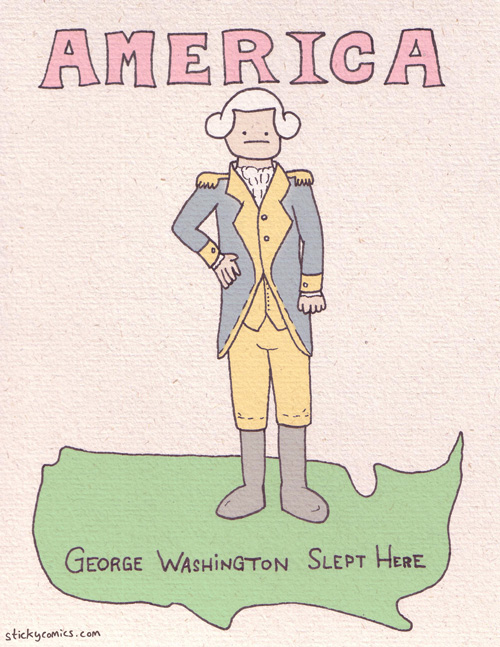 AMERICA
GEORGE WASHINGTON SLEPT HERE
stickycomics.com